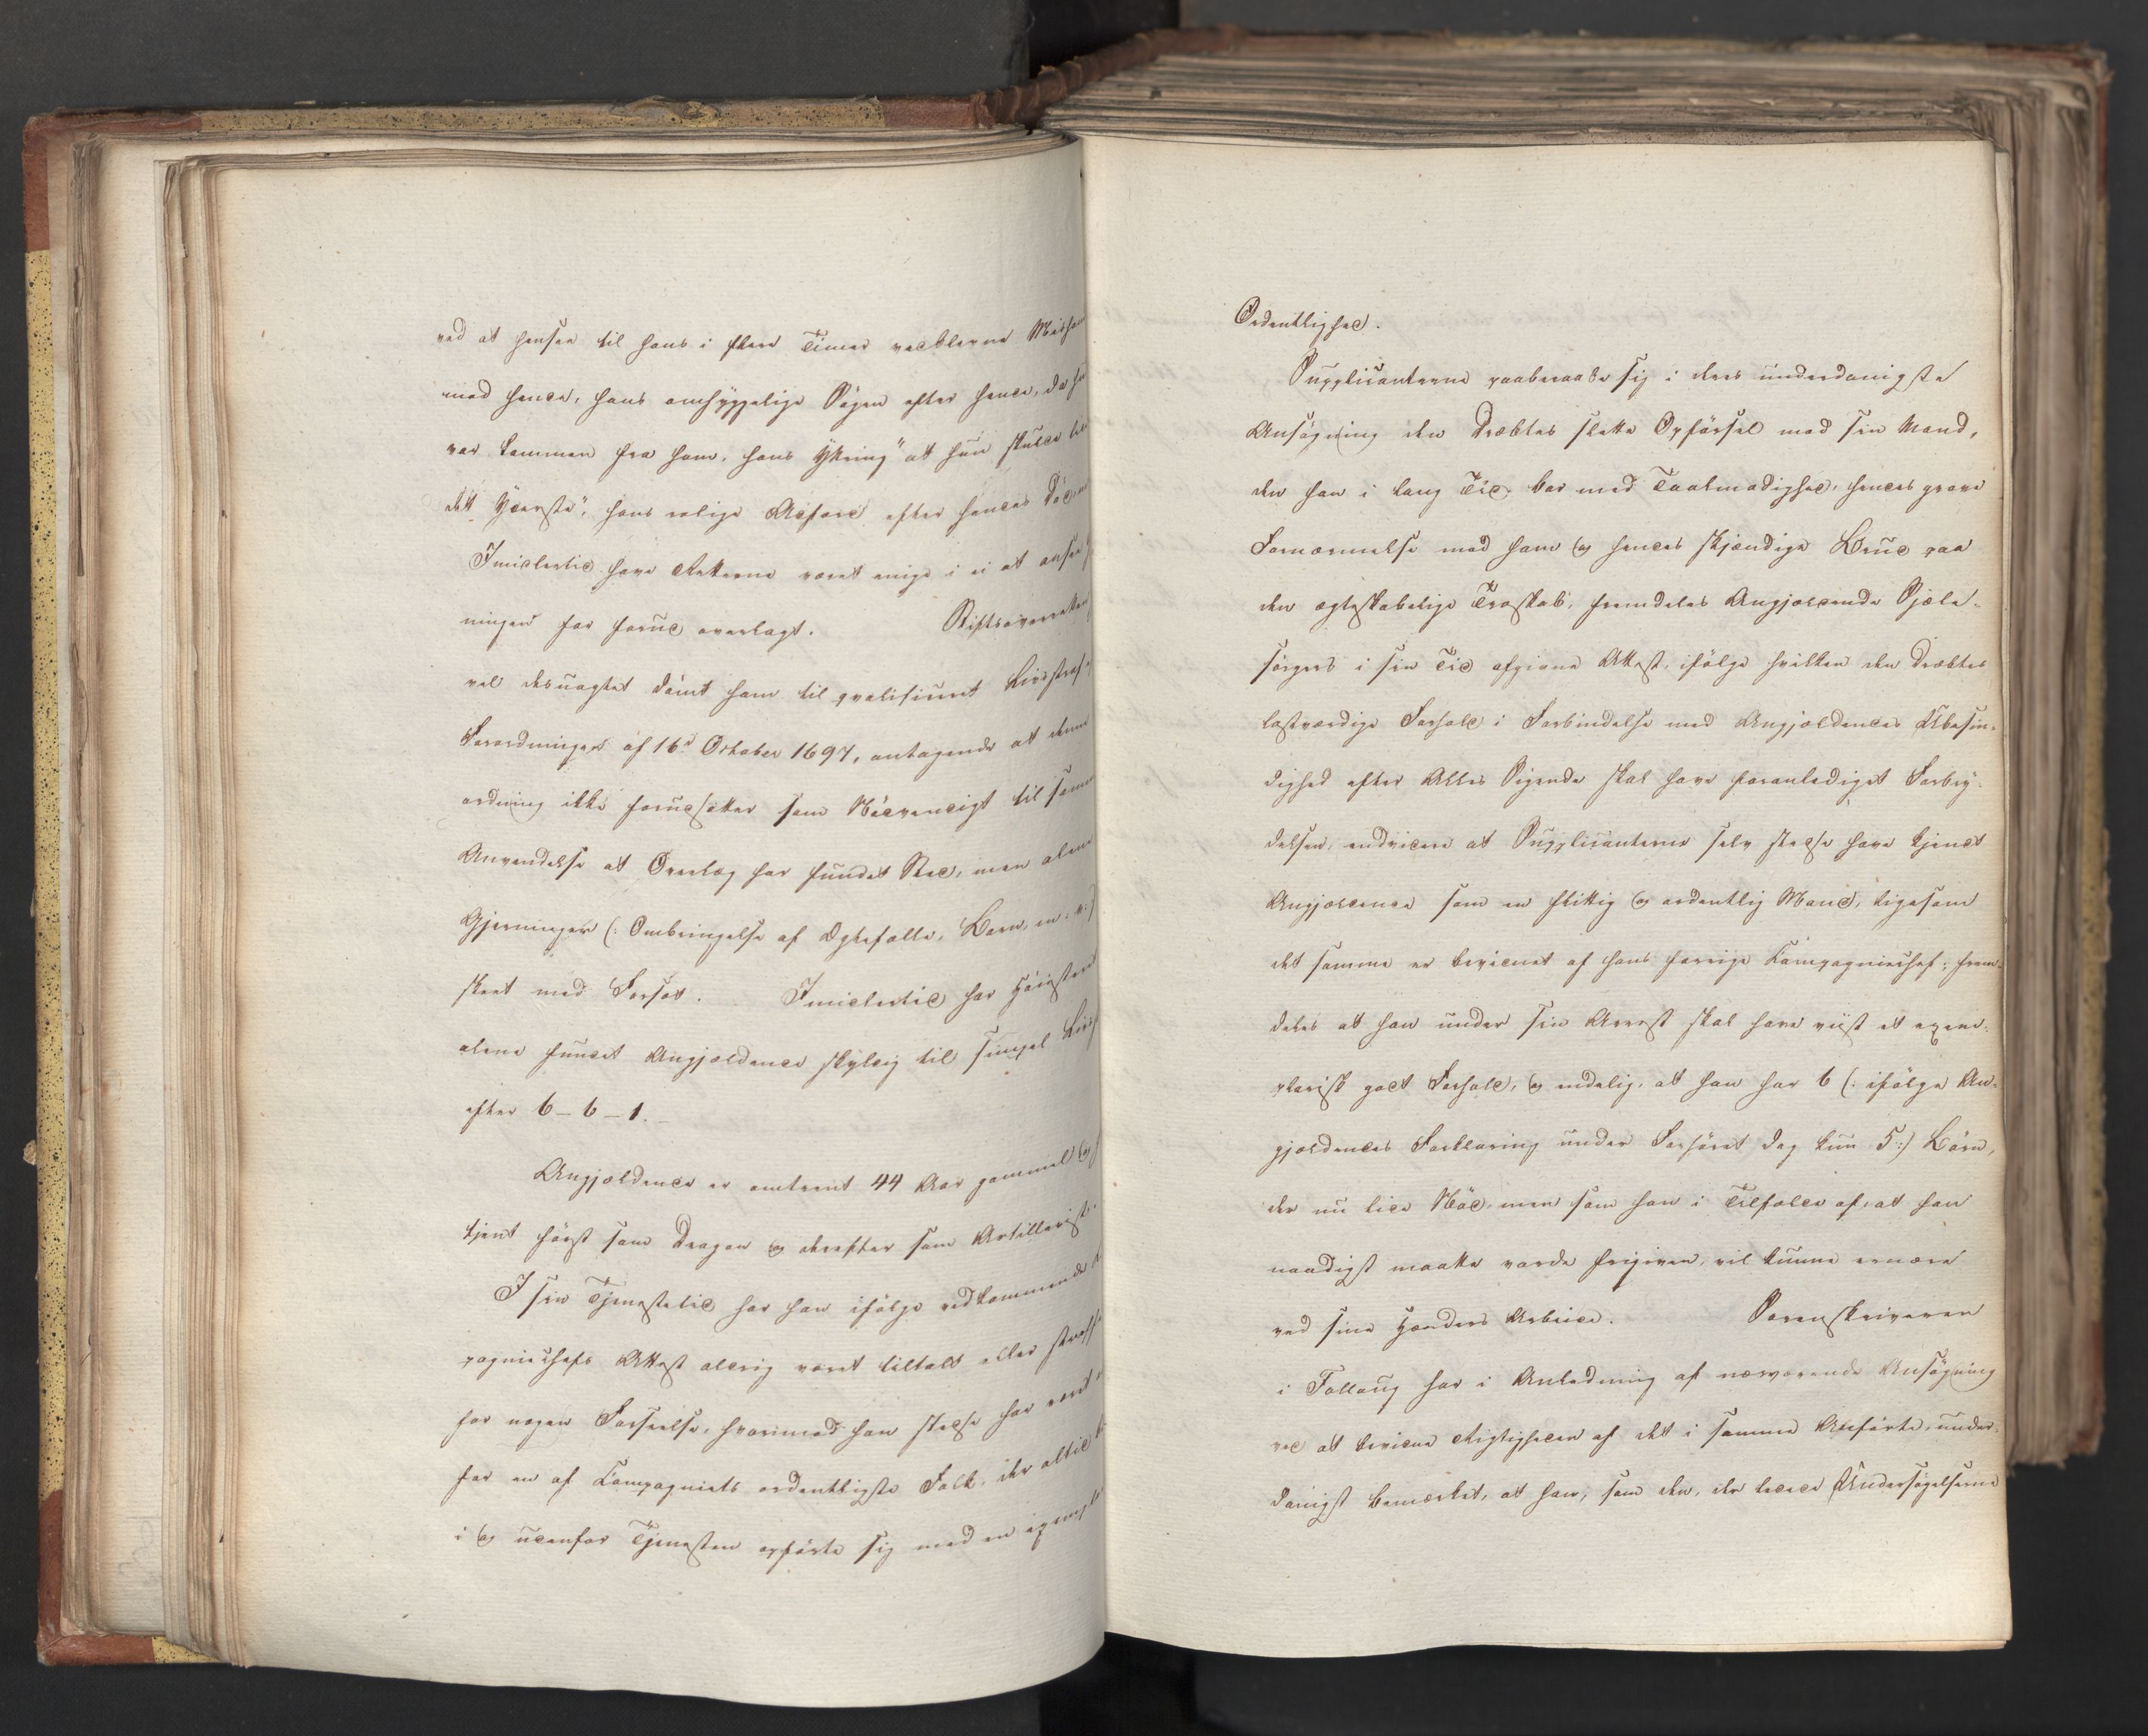 ved at hensee til hans i flere Timer vedblevne Mishan
mod hende, hans omhyggelige Søgen efter hende, da hu
var kommen fra ham, hans Yttring "at hun skulde lide
det Yderste", hans rolige Adfærd efter hendes Død
Imidlertid have Retterne været enige i ei at ansee
ningen for forud overlagt. Stiftsoverretten
vel desuagtet dømt ham til qvalificeret Livsstraf
Forordningen af 16d October 1697, antagende at denne
ordning ikke forudsætter som Nødvendigt til samme
Anvendelse at Overlæg har fundet Sted, men alene
Gjerningen (: Ombringelse af Ægtefælle, Barn, m: v:)
skeet med Forsæt. Imidlertid har Høiesteret
alene fundet Angjældende skyldig til simpel Livs
efter 6-6-1.
Angjældende er omtrent 44 Aar gammel og
tjent først som Dragon og derefter som Artillerist.
I sin Tjenestetid har han ifølge vedkommende
pagniechefs Attest aldrig været tiltalt eller straffe
for nogen Forseelse, hvorimod han stedse har været
for en af Compagniets ordentligste Folk, der altid
i og udenfor Tjenesten opførte sig med en exempla
Ordentlighed.
Supplicanterne paaberaabe sig i deres underdanigste
Ansøgning den Dræbtes slette Opførsel mod sin Mand,
den han i lang Tid bar med Taalmodighed, hendes grove
Fornærmelse mod ham og hendes skjændige Brud paa
den ægteskabelige Troskab, fremdeles Angjældende Sjæle-
sørgers i sin Tid afgivne Attest, ifølge hvilken den Dræbtes
lastværdige Forhold i Forbindelse med Angjældendes Ubesin-
dighed efter Alles Sigende skal have foranlediget Forbry-
delsen, endvidere at Supplicanterne selv stedse have kjendt
Angjældende som en flittig og ordentlig Mand, ligesom
det samme er bevidnet af hans forrige Compagniechef; frem-
deles at han under sin Arrest skal have viist et exem-
plarisk godt Forhold, og endelig, at han har 6 (: ifølge An-
gjældendes Forklaring under Forhøret dog kun 5 :) Børn,
der nu lide Nød, men som han i Tilfælde af, at han
naadigst maatte vorde frigiven, vil kunne ernære
ved sine Hænders Arbeide. Sorenskriveren
i Folloug har i Anledning af nærværende Ansøgning
ved at bevidne Rigtigheden af det i samme Anførte, under-
danigst bemærket, at han, som den, der ledede Undersøgelserne